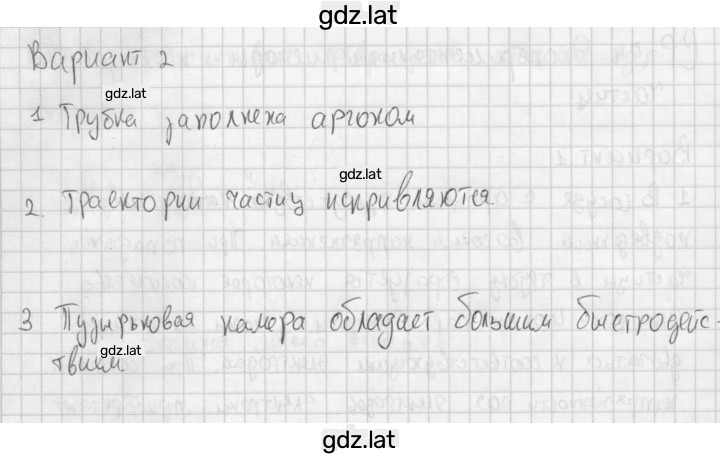 gdz.lat
Вариант 2
gdz.lat
1 Трубка заполнена аргоном
gdz.lat
2. Траектории частиц искривляются
gdz.lat
3 Пузырьковая камера обладает большим быстродейс-
gdz.lat
твием
gdz.lat